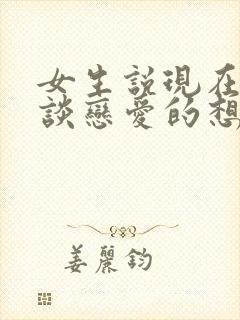 女生説現在
談戀愛的想
姜麗鈞